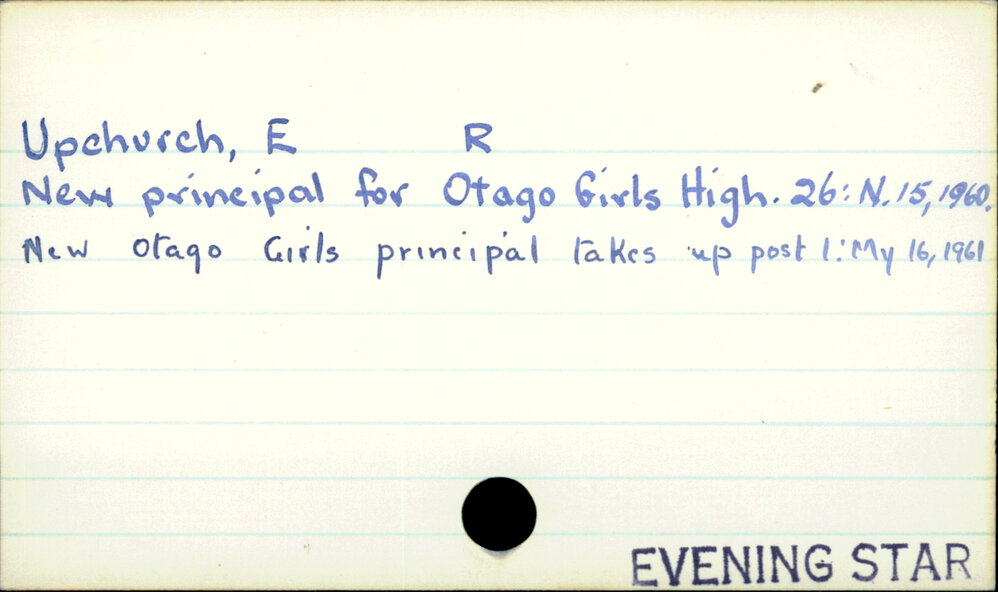 Upchurch, E R
New principal for Otago Girls High. 26: N. 15, 1960.
New Otago Girls principal takes up post 1: My 16, 1961
EVENING STAR